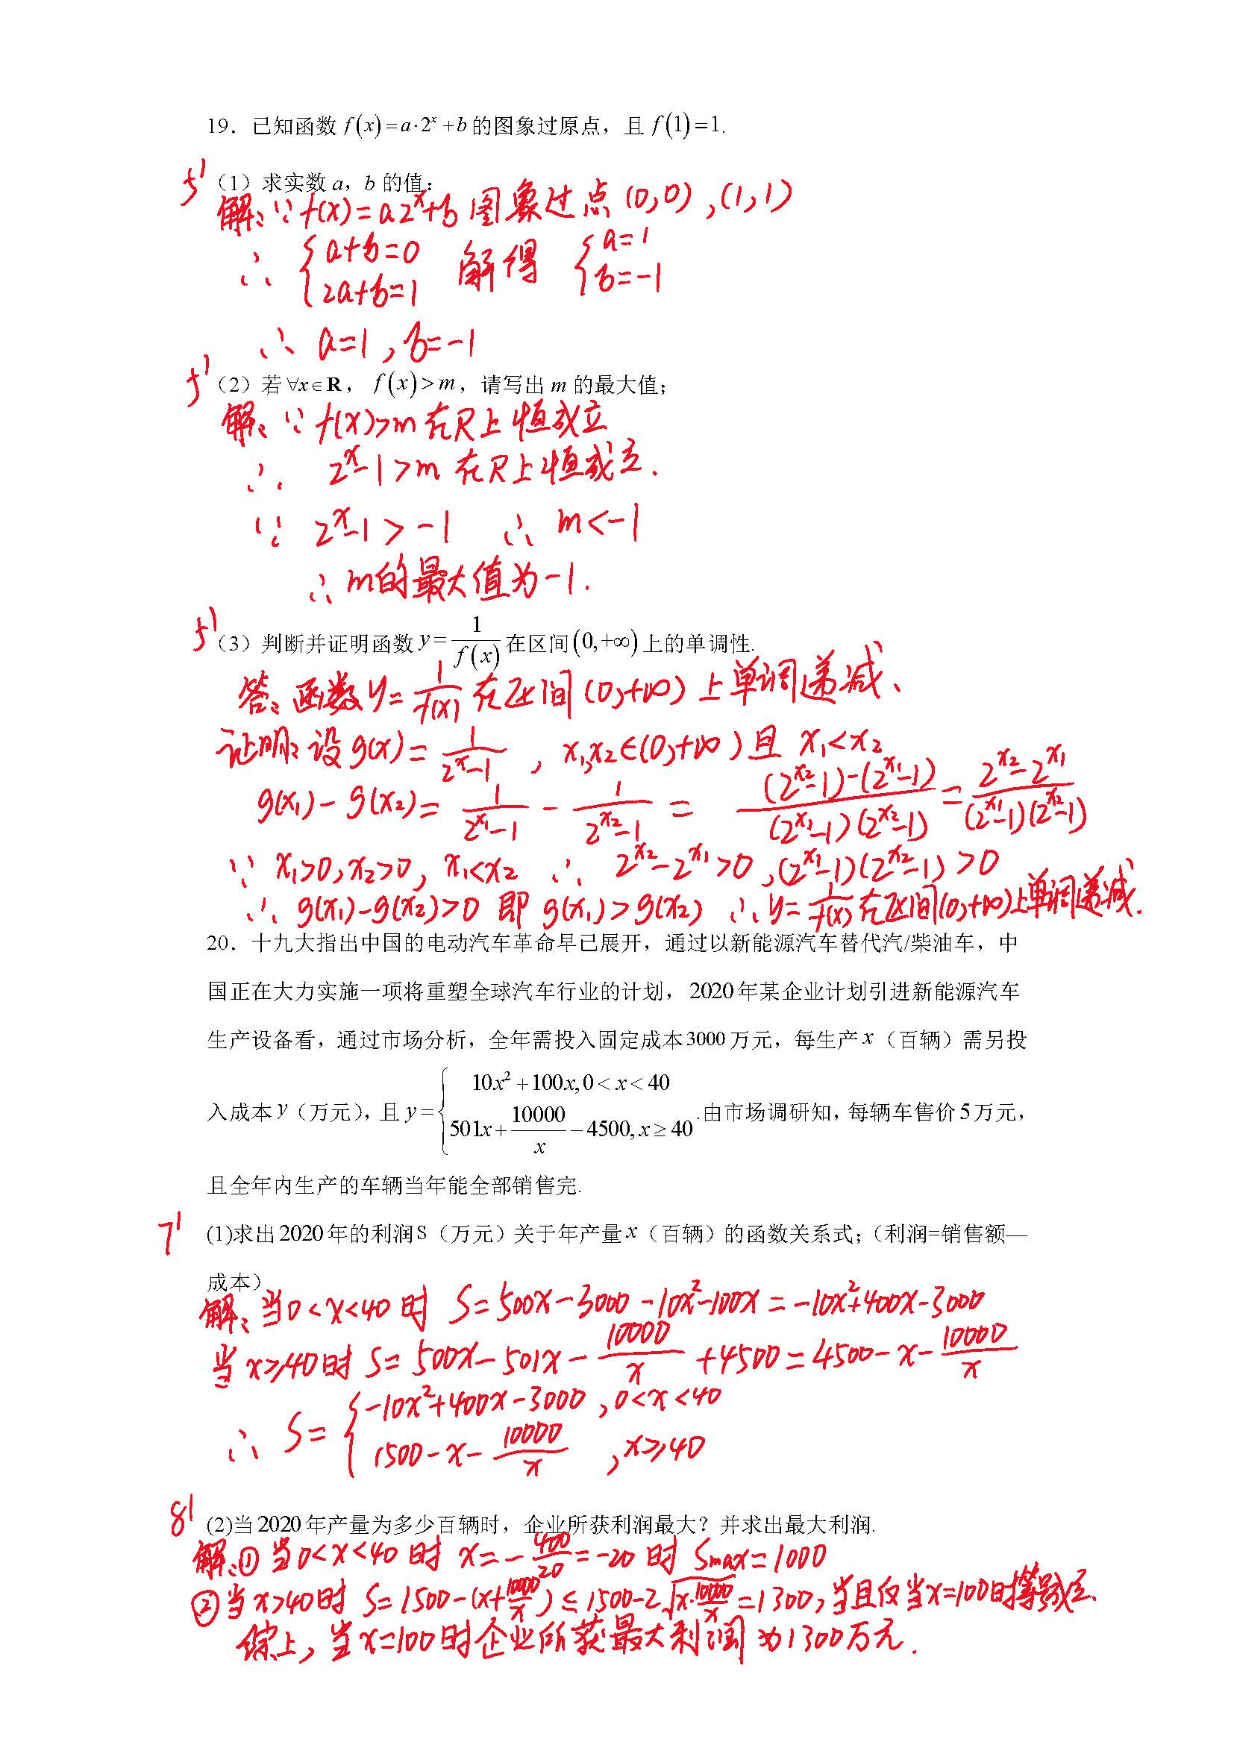 19．已知函数 f(x)=a·2ˣ+b 的图象过原点，且 f(1)=1.
5'（1）求实数 a，b 的值；
解：∵f(x)=a2ˣ+b 图象过点 (0,0) ,(1,1)
∴ {a+b=0 2a+b=1 解得 {a=1 b=-1
∴ a=1 , b=-1
5'（2）若∀x∈R， f(x)>m，请写出 m 的最大值；
解：∵ f(x)>m 在R上恒成立
∴ 2ˣ-1>m 在R上恒成立.
∵ 2ˣ-1>-1 ∴ m<-1
∴m的最大值为-1.
5'（3）判断并证明函数 y=1/f(x) 在区间(0,+∞)上的单调性.
答：函数y=1/f(x) 在区间(0,+∞)上单调递减、
证明：设g(x)=1/(2ˣ-1) , x₁,x₂∈(0,+∞)且 x₁<x₂
g(x₁)-g(x₂)=1/(2^x₁-1) - 1/(2^x₂-1) = ((2^x₂-1)-(2^x₁-1))/((2^x₁-1)(2^x₂-1)) = (2^x₂-2^x₁)/((2^x₁-1)(2^x₂-1))
∵ x₁>0,x₂>0, x₁<x₂ ∴ 2^x₂-2^x₁>0,(2^x₁-1)(2^x₂-1)>0
∴ g(x₁)-g(x₂)>0 即 g(x₁)>g(x₂) ∴y=1/f(x)在区间(0,+∞)上单调递减.
20．十九大指出中国的电动汽车革命早已展开，通过以新能源汽车替代汽/柴油车，中
国正在大力实施一项将重塑全球汽车行业的计划， 2020年某企业计划引进新能源汽车
生产设备看，通过市场分析，全年需投入固定成本3000万元，每生产x（百辆）需另投
入成本y（万元），且y={10x²+100x,0<x<40 501x+10000/x-4500,x≥40 .由市场调研知，每辆车售价5万元，
且全年内生产的车辆当年能全部销售完.
7' (1)求出2020年的利润S（万元）关于年产量x（百辆）的函数关系式；（利润=销售额—
成本）
解：当0<x<40时 S=500x-3000-10x²-100x=-10x²+400x-3000
当x≥40时 S=500x-501x-10000/x+4500=4500-x-10000/x
∴ S={-10x²+400x-3000 ,0<x<40 1500-x-10000/x ,x≥40
8' (2)当2020年产量为多少百辆时，企业所获利润最大？并求出最大利润.
解：①当0<x<40时 x=-400/20=-20时 Smax=1000
②当x>40时 S=1500-(x+10000/x)≤1500-2√(x·10000/x)=1300,当且仅当x=100时等号成立.
综上，当x=100时企业所获最大利润为1300万元.